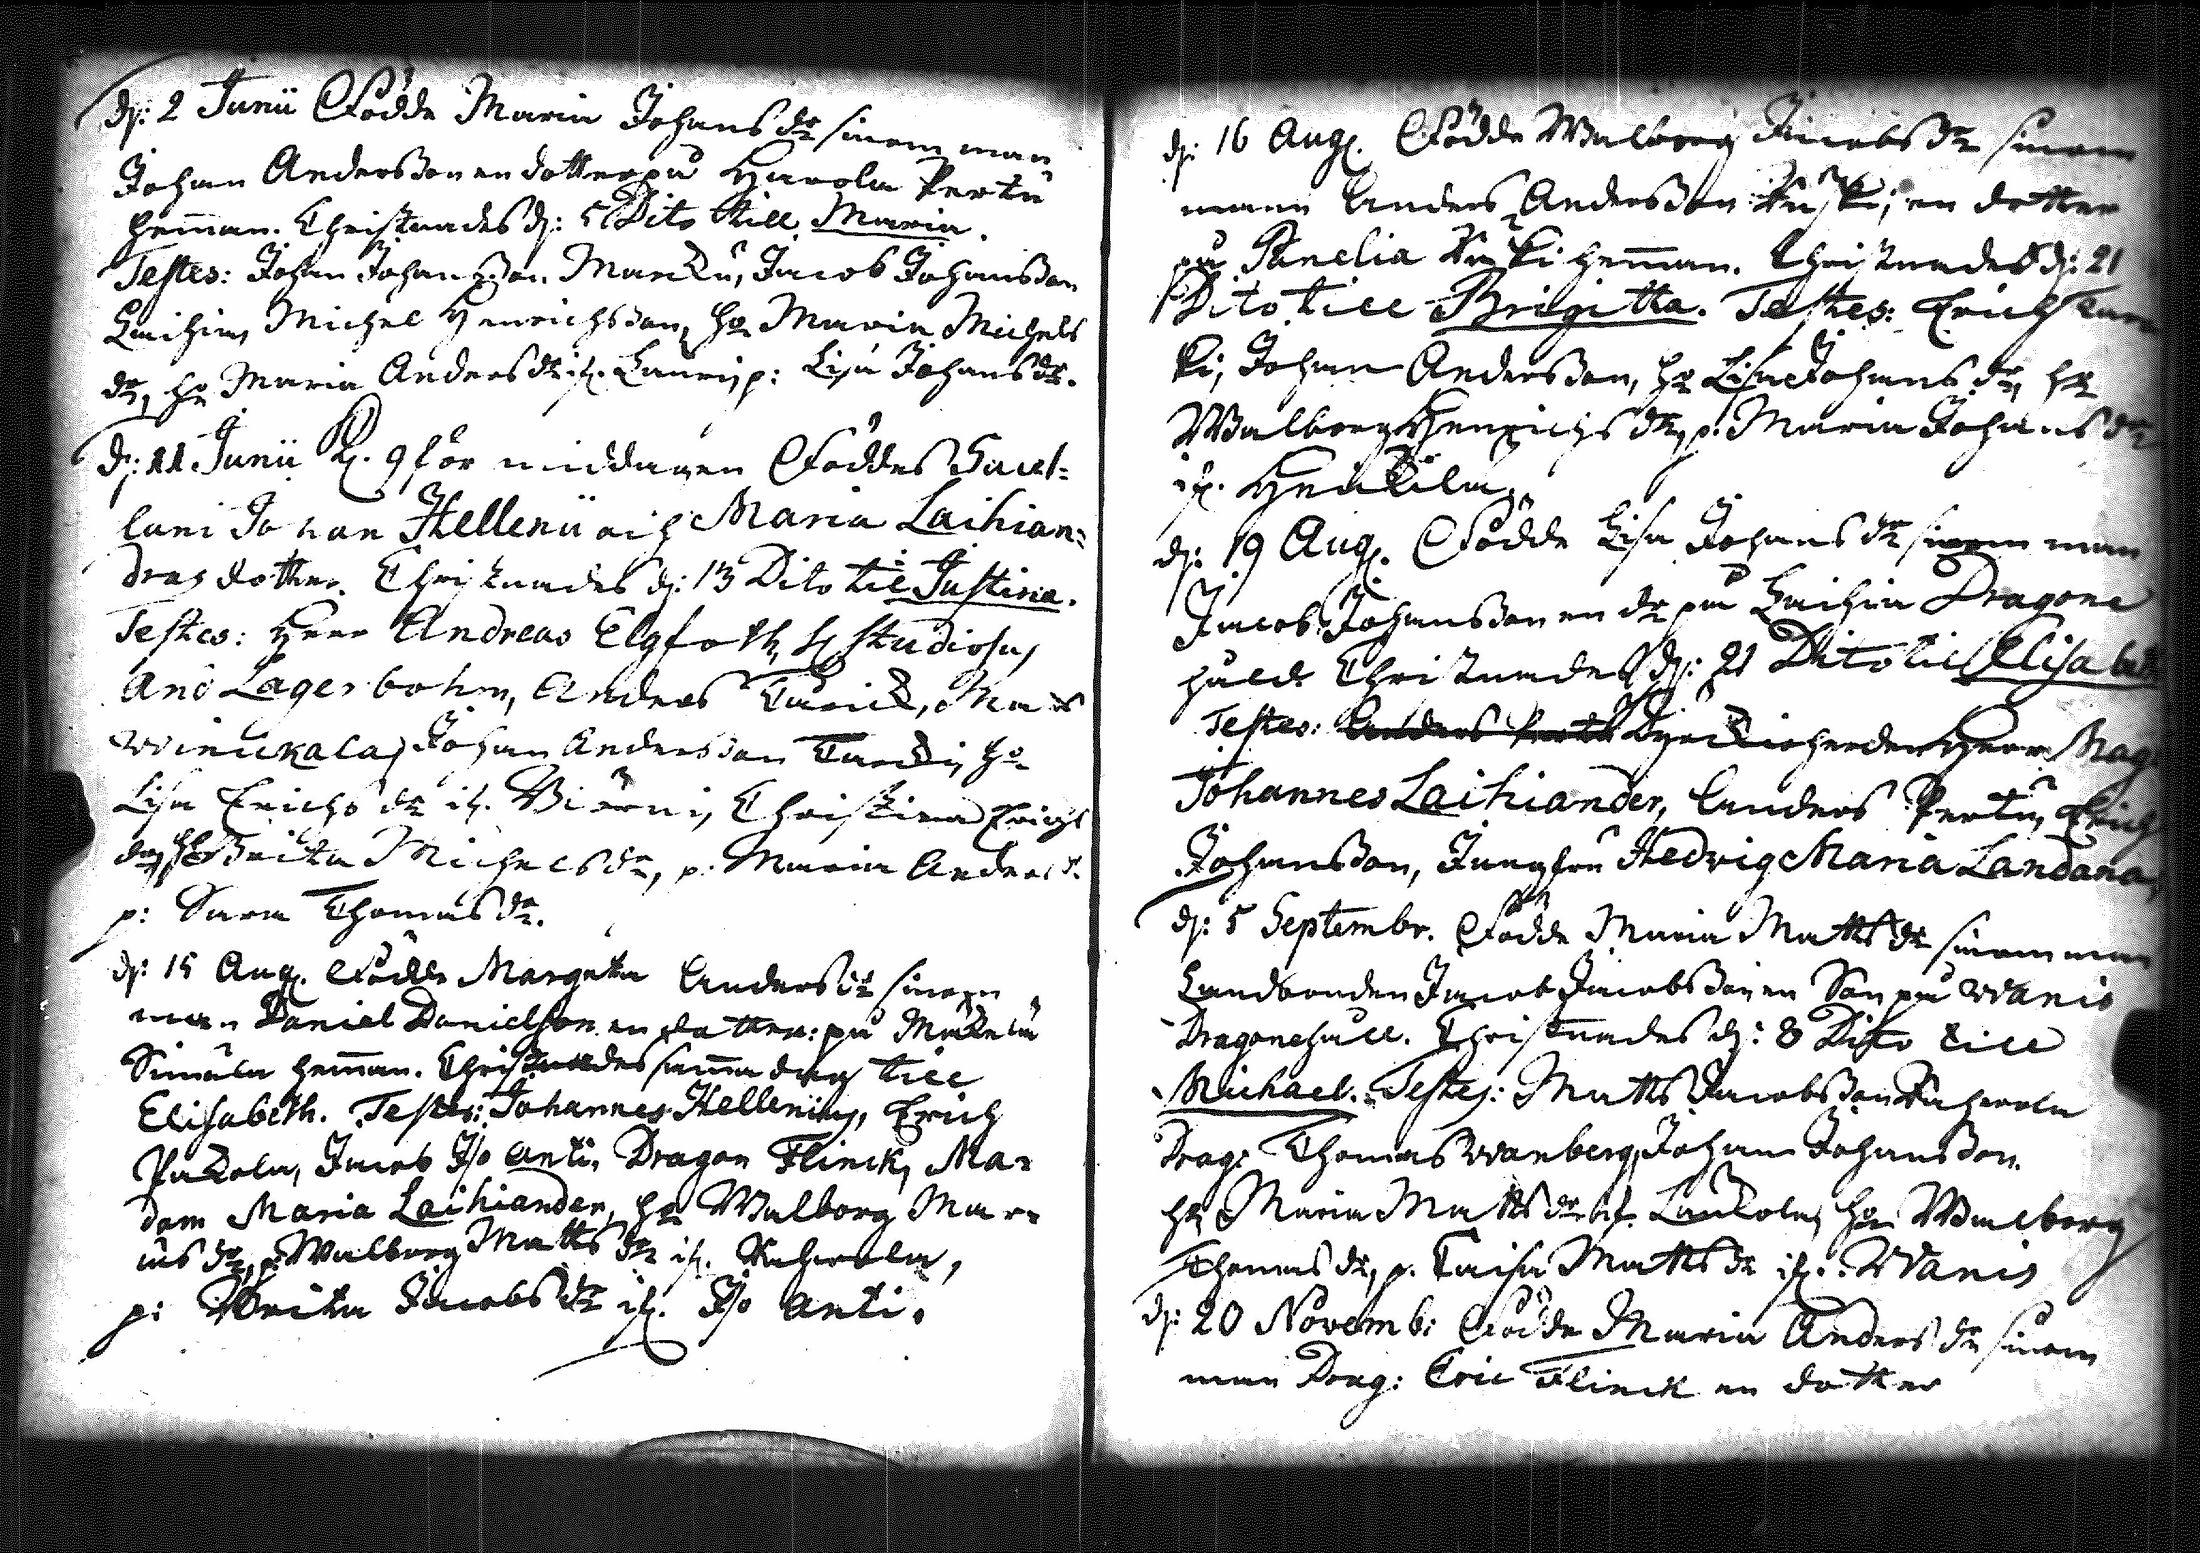 d: 2 Junii Födde Maria Johans dr sinom man
Johan Andersson en dotter på Harola Pertu
hemman. Christnades d: 5 Dito till Maria.
Testes: Johan Johansson Marcku, Jacob Johansson
Laihia, Michel Henrichsson, hr Maria Michels
dr, hr Maria Anders dr if. Lauri, p: Lisa Johans dr.
d: 11 Junii Kl. 9 för middagen Föddes Sacel-
lani Johan Hellenii och Maria Laihian-
dras dotter. Christnades d: 13 Dito till Justina.
Testes: Herr Andreas Elgfoth, H studiosus
And Lagerbohm, Anders Turick, Mats
Winukala, Johan Andersson Turcki, hr
Lisa Erichs dr if. Biörni, Christina Erichs
dr, hr Brita Michels dr, p: Maria Anders dr.
p: Sara Thomas dr.
d: 15 Aug. Födde Margeta Anders dr sinom
man Daniel Danielsson en dotter: på
Simula hemman. Christnades samma dag till
Elisabeth. Testes: Johannes Hellenius, Erich
Jacob Iso Anti, Dragon Flinck, Ma-
dam Maria Laihiander, hr Walborg Mar-
cus dr, p: Walborg Matts dr if. Kaherola,
p: Brita Jacobs dr if. Iso Anti.
d: 16 Aug. Födde Walborg Jacobs dr sinom
man Anders Andersson Kuski, en dotter
på Panelia Kuski hemman. Christnades d: 21
Dito till Brigitta. Testes: Erich
ki, Johan Andersson, hr Lisa Johans dr, hr
Walborg Henrichs dr, p. Maria Johans dr
if. Heickila.
d: 19 Aug. Födde Lisa Johans dr sinom man
Jacob Johansson en dr på Laihia Dragone
huld. Christnades d: 21 Dito till Elisabet
Testes: Anders Pertu Kyrckioherden Herr Mag.
Johannes Laihiander, Anders Pertu, Erich
Johansson, Jungfru Hedvig Maria Landana,
d: 5 Septembr. Födde Maria Matts dr sinom man
Landbonden Jacob Jacobsson en Son på Wanis
Dragonehuld. Christnades d: 8 Dito till
Michael. Testes: Matts Jacobsson Kaherola
Drag: Thomas Wanberg, Johan Johansson
hr Maria Matts dr if. Laukola, hr Walborg
Thomas dr, p. Caisa Matts dr if. Wanis
d: 20 Novemb: Födde Maria Anders dr sinom
man Drag: Eric Flinck en dotter